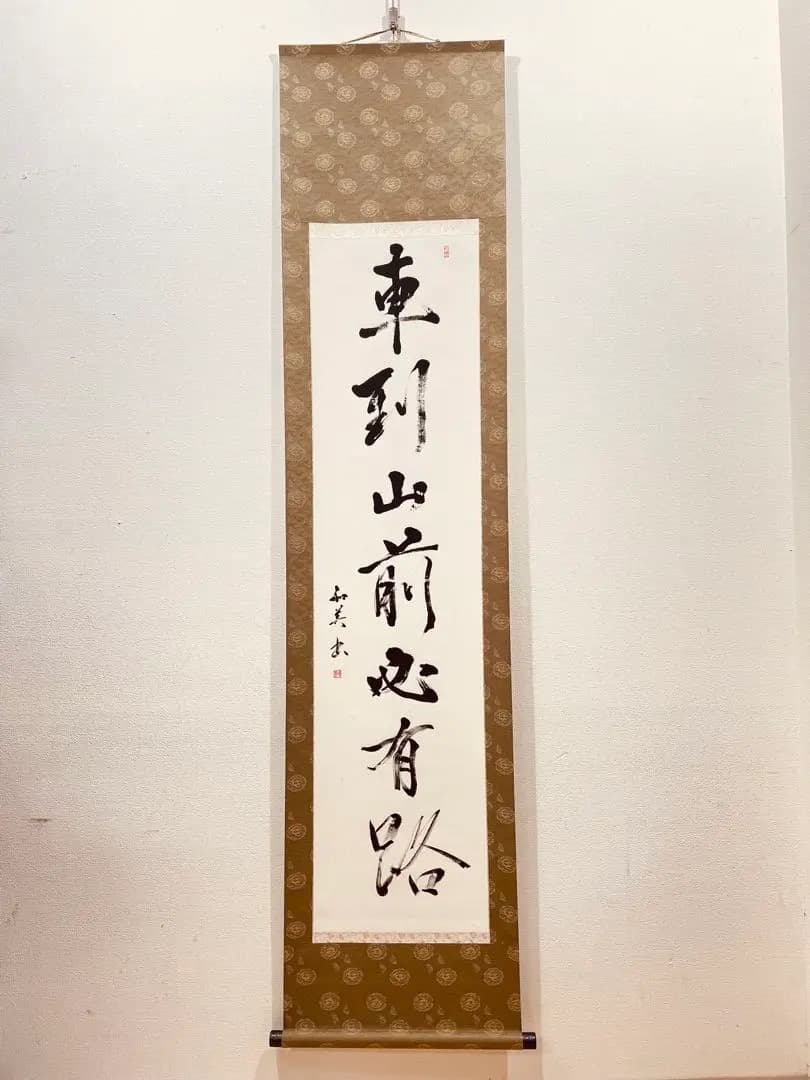 車到山前必有路
和英書